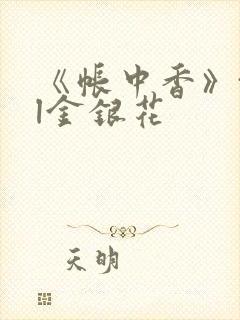 《帐中香》
|金银花
天明